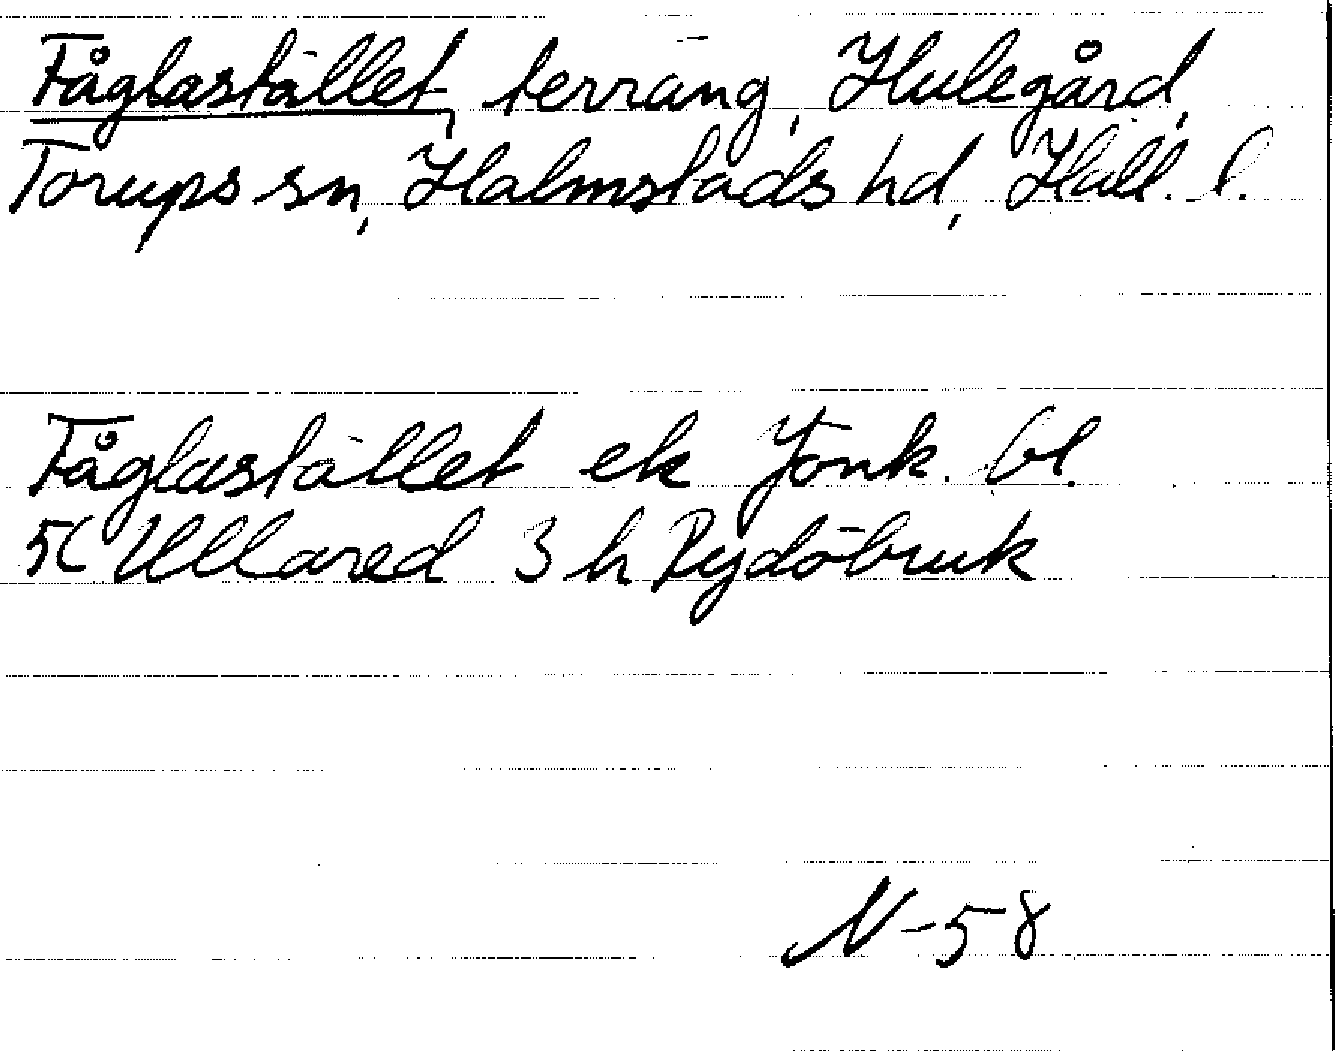 Fåglastället, terräng, Hulegård,
Torups sn, Halmstads hd, Hall. l.
Fåglastället ek Jönk. bl.
5C Ullared 3 h Rydöbruk
N-58